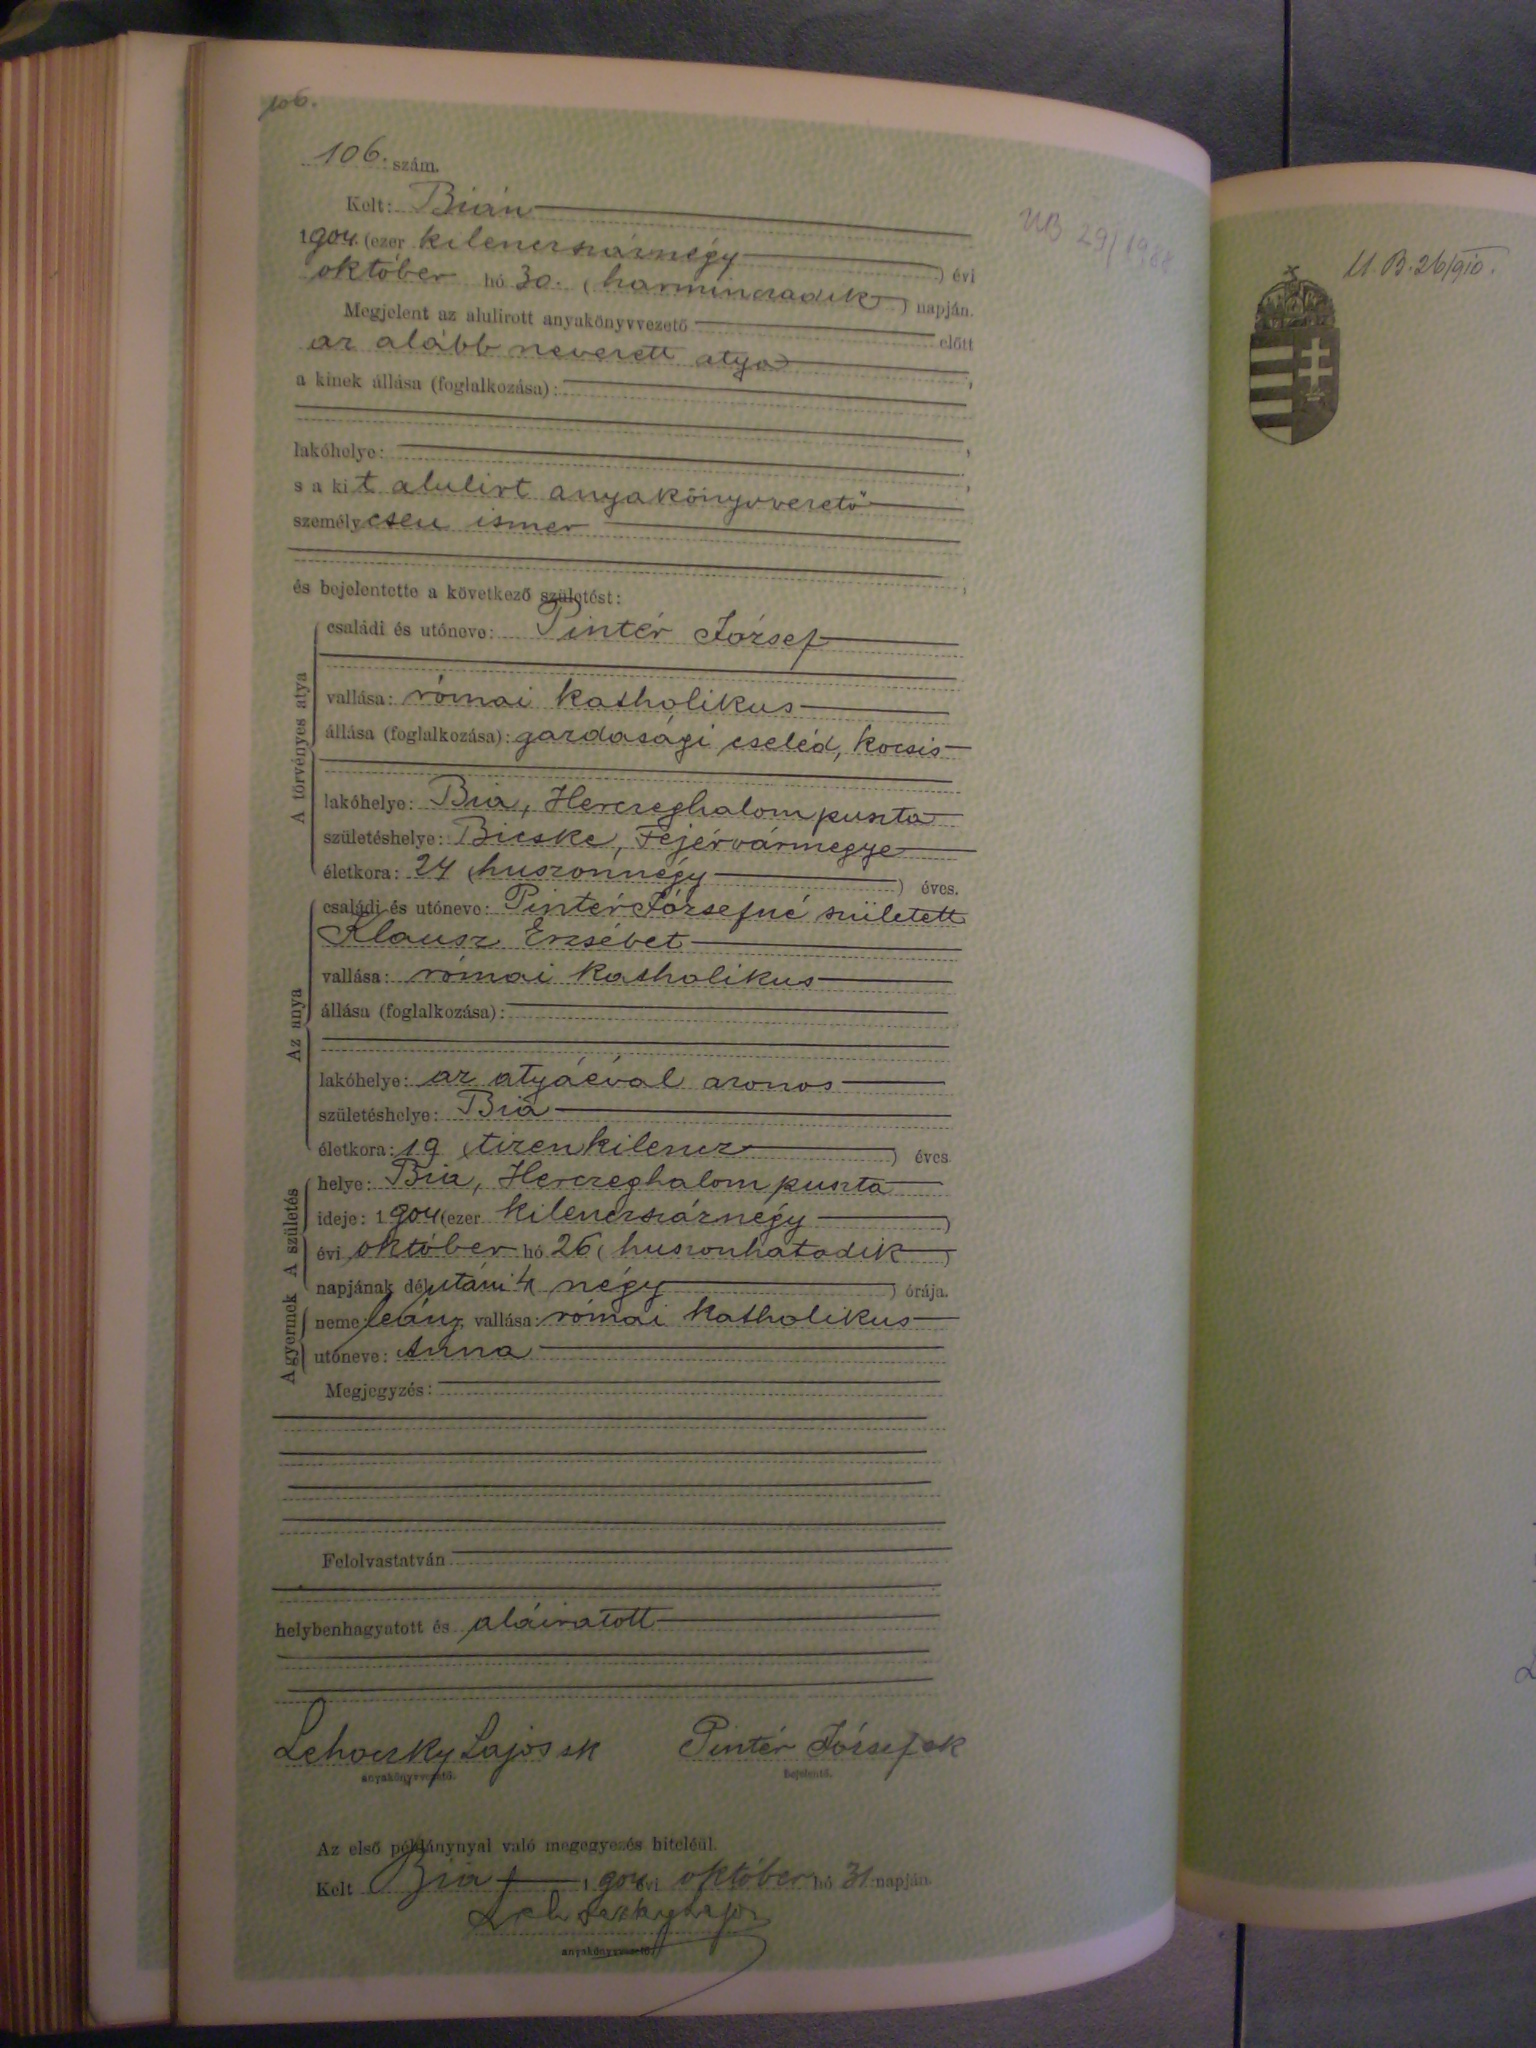 106.
106. szám.
Kelt: Bián
1904. (ezer kilenczszáznégy) évi
október hó 30. (harminczadik) napján.
Megjelent az alulirott anyakönyvvezető előtt
az alább nevezett atya,
a kinek állása (foglalkozása):
lakóhelye:
s a kit alulirt anyakönyvvezető
személyesen ismer
és bejelentette a következő születést:
A törvényes atya
családi és utóneve: Pintér József
vallása: római katholikus
állása (foglalkozása): gazdasági cseléd, kocsis
lakóhelye: Bia, Herczeghalom puszta
születéshelye: Bicske, Fejérvármegye
életkora: 24 (huszonnégy) éves.
Az anya
családi és utóneve: Pintér Józsefné született
Klausz Erzsébet
vallása: római katholikus
állása (foglalkozása):
lakóhelye: az atyáéval azonos
születéshelye: Bia
életkora: 19 (tizenkilencz) éves.
A születés
helye: Bia, Herczeghalom puszta
ideje: 1904 (ezer kilenczszáznégy)
évi október hó 26 (huszonhatodik)
napjának délutáni 4 (négy) órája.
A gyermek
neme: leány, vallása: római katholikus
utóneve: Anna
Megjegyzés:
Felolvastatván
helybenhagyatott és aláiratott
Lehoczky Lajos sk Pintér József sk
anyakönyvvezető. bejelentő.
Az első példánynyal való megegyezés hiteléül.
Kelt Bia 1904 évi október hó 31 napján.
Lehoczky Lajos
anyakönyvvezető.
UB 29/
U. B. 26/910.